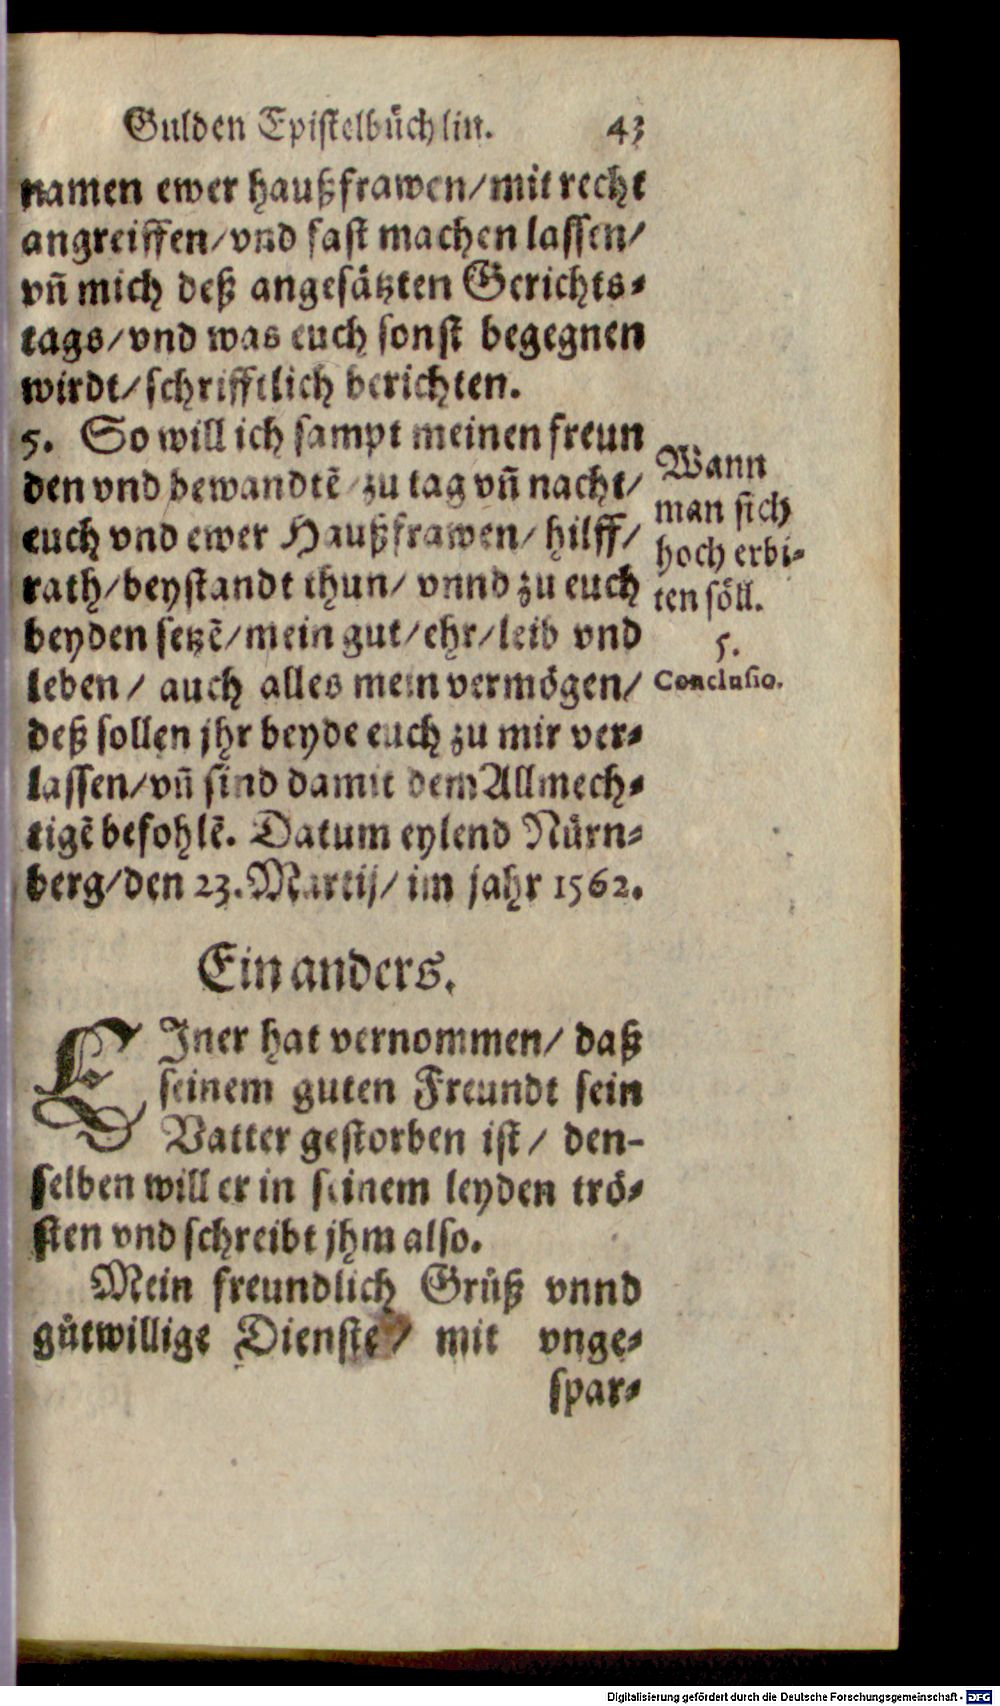 Gulden Epistelbuͤchlin. 43
namen ewer haußfrawen/mit recht
angreiffen/vnd fast machen lassen/
vñ mich deß angesaͤtzten Gerichts⸗
tags/vnd was euch sonst begegnen
wirdt/schrifftlich berichten.
5. So will ich sampt meinen freun
den vnd bewandtẽ zu tag vñ nacht/
euch vnd ewer Haußfrawen/ hilff/
rath/beystandt thun/ vnnd zu euch
beyden setzẽ/mein gut/ehr/leib vnd
leben/ auch alles mein vermoͤgen/
deß sollen jhr beyde euch zu mir ver⸗
lassen/vñ sind damit dem Allmech⸗
tigẽ befohlẽ. Datum eylend Nuͤrn⸗
berg/den 23. Martij/ im jahr 1562.
Wann
man sich
hoch erbi⸗
ten soͤll.
5.
Conclusio.
Ein anders.
EIner hat vernommen/ daß
seinem guten Freundt sein
Vatter gestorben ist/ den-
selben will er in seinem leyden troͤ⸗
sten vnd schreibt jhm also.
Mein freundlich Gruͤß vnnd
guͤtwillige Dienste/ mit vnge⸗
spar⸗
Digitalisierung gefördert durch die Deutsche Forschungsgemeinschaft - DFG